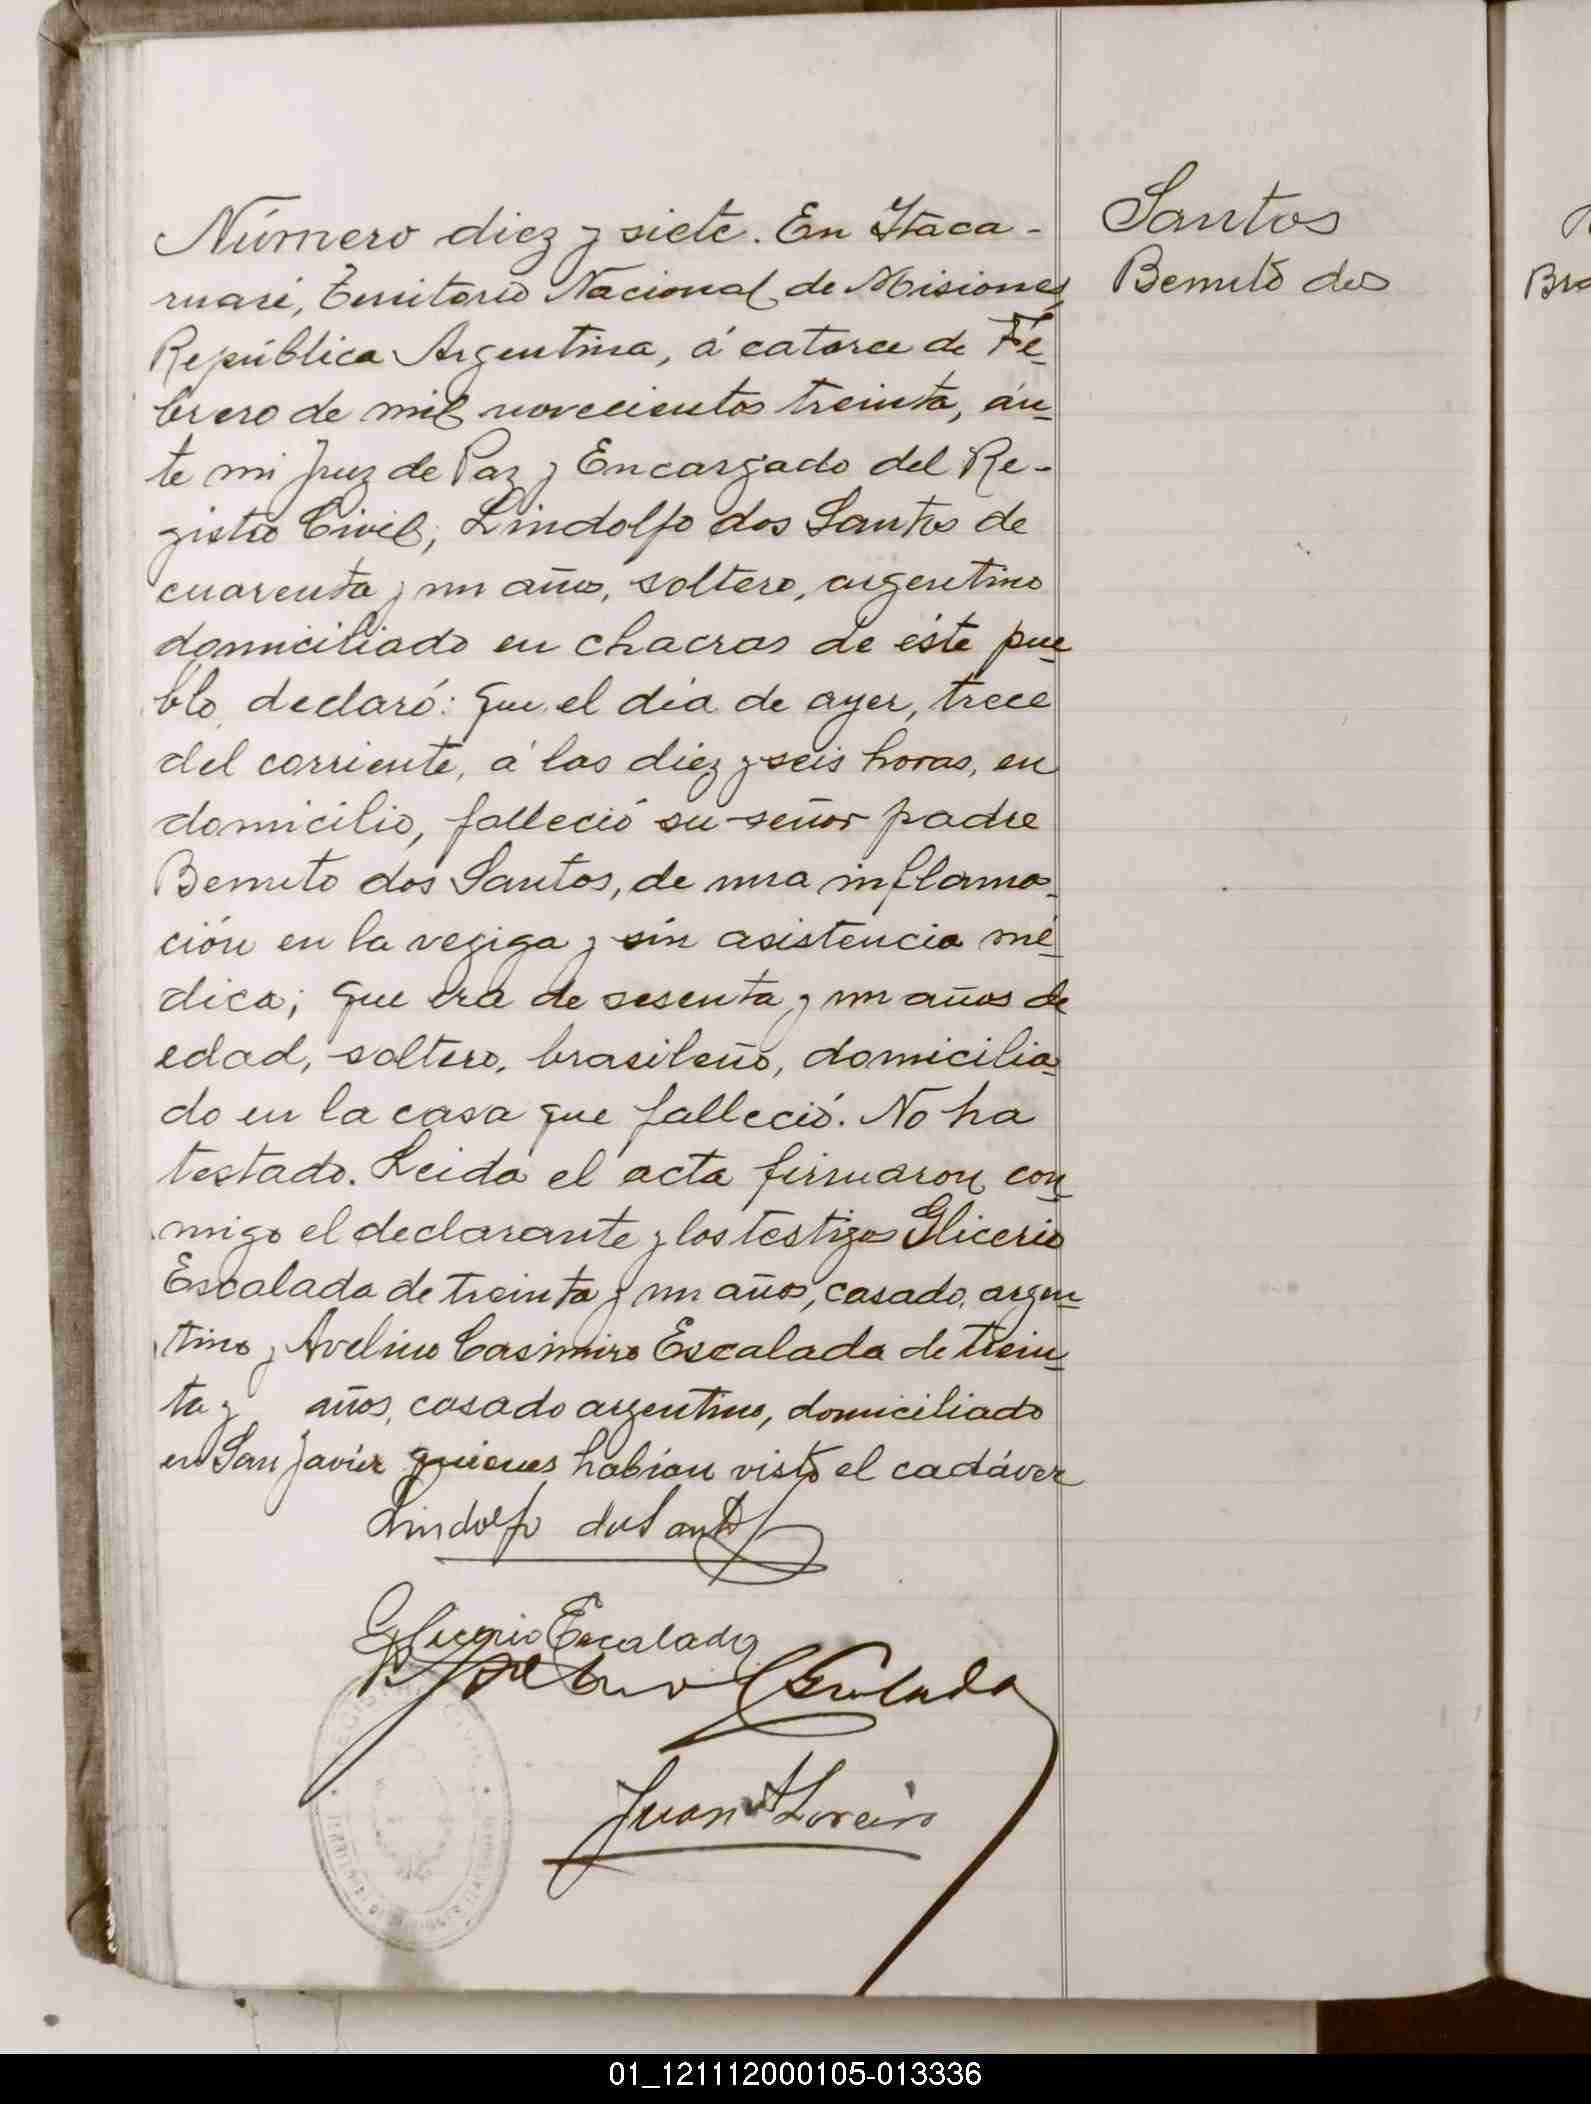 Número diez y siete. En Itaca-
ruaré, Territorio Nacional de Misiones
República Argentina, á catorce de Fe-
brero de mil novecientos treinta, án-
te mi Juez de Paz y Encargado del Re-
gistro Civil, Lindolfo dos Santos de
cuarenta y un años, soltero, argentino
domiciliado en chacras de éste pue-
blo declaró: Que el día de ayer, trece
del corriente, á las diez y seis horas, en
domicilio, falleció su señor padre
Benuto dos Santos, de una inflama-
ción en la vegiga y sin asistencia mé-
dica; que era de sesenta y un años de
edad, soltero, brasileño, domicilia-
do en la casa que falleció. No ha
testado. Leida el acta firmaron con-
migo el declarante y los testigos Glicerio
Escalada de treinta y un años, casado, argen-
tino y Avelino Casimiro Escalada de trein-
ta y años, casado argentino, domiciliado
en San Javier quienes habian visto el cadáver
Lindolfo do Santos
Glicerio Escalada
Escalada
Juan
Santos
Benuto dos
Bra
01_121112000105-013336